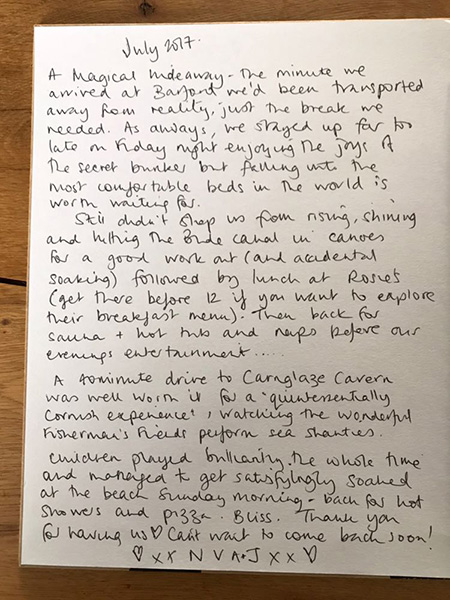 July 2017.
A Magical hideaway - the minute we
arrived at Barford we'd been transported
away from reality, just the break we
needed. As always, we stayed up far too
late on Friday night enjoying the joys of
the secret bunker but falling into the
most comfortable beds in the world is
worth waiting for.
Still didn't stop us from rising, shining
and hitting the Bude canal in canoes
for a good work out (and accidental
soaking) followed by lunch at Rosie's
(get there before 12 if you want to explore
their breakfast menu). Then back for
sauna + hot tub and naps before our
evenings entertainment.....
A 40minute drive to Carnglaze Cavern
was well worth it for a 'quintessentially
Cornish experience', watching the wonderful
Fisherman's Friends perform sea shanties.
Children played brilliantly the whole time
and managed to get satisfyingly soaked
at the beach Sunday morning - back for hot
showers and pizza. Bliss. Thank you
for having us ♡ Can't want to come back soon!
♡ x x N V A+J x x ♡